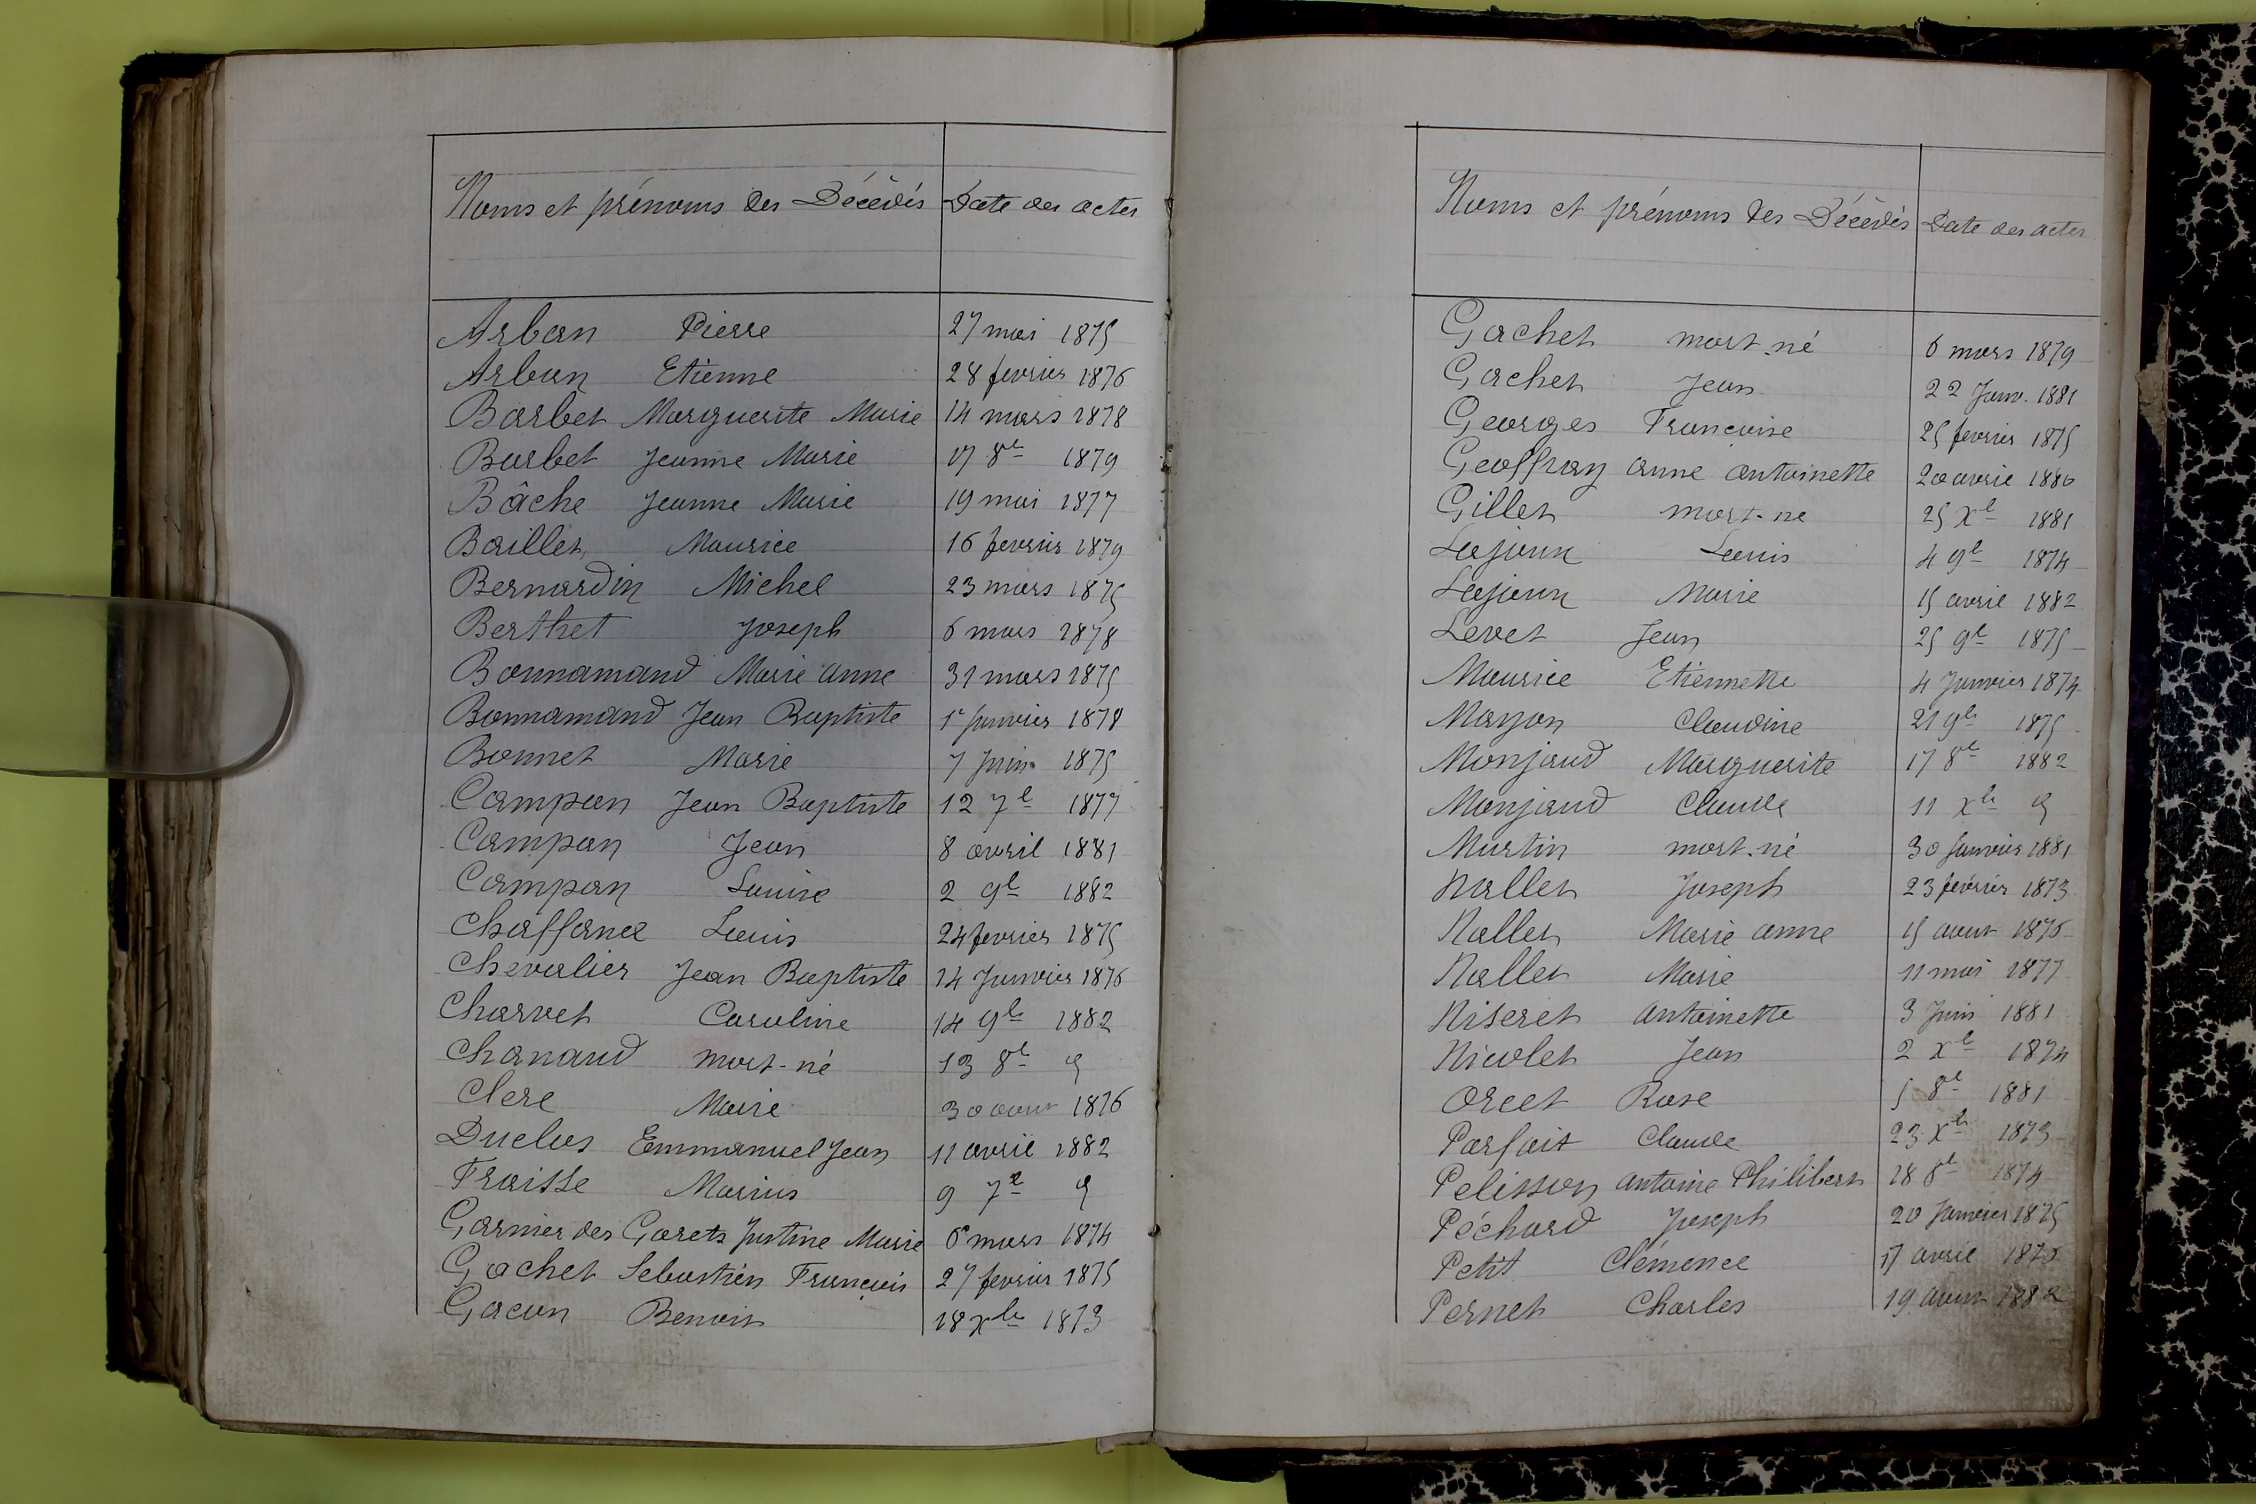 Noms et prénoms des Décédés Date des actes
Arban Pierre 27 mai 1875
Arban Etienne 28 fevrier 1876
Barbet Marguerite Marie 14 mars 1878
Barbet Jeanne Marie 17 8e 1879
Bâche Jeanne Marie 19 mai 1877
Baillet Maurice 16 fevrier 1879
Bernardin Michel 23 mars 1875
Berthet Joseph 6 mars 1878
Bonnamand Marie anne 31 mars 1875
Bonnamand Jean Baptiste 1e Janvier 1878
Bonnet Marie 7 Juin 1875
Campan Jean Baptiste 12 7e 1877
Campan Jean 8 avril 1881
Campan Louise 2 9e 1882
Chaffance Louis 24 fevrier 1875
Chevalier Jean Baptiste 14 Janvier 1876
Charvet Caroline 14 9e 1882
Chanaud mort-né 13 8e d
Clerc Marie 30 aout 1876
Duclos Emmanuel Jean 11 avril 1882
Fraisse Marius 9 7e d
Garnier des Garets Justine Marie 6 mars 1874
Gachet Sebastien François 27 fevrier 1875
Gacon Benoit 18 Xbe 1873
Noms et prénoms des Décédés Date des actes
Gachet mort-né 6 mars 1879
Gachet Jean 22 Janv. 1881
Georges Francoise 25 fevrier 1875
Geoffray anne antoinette 20 avril 1880
Gillet mort-ne 25 Xe 1881
Lajoux Louis 4 9e 1874
Lajoux Marie 15 avril 1882
Levet Jean 25 9e 1875
Maurice Etiennette 4 Janvier 1874
Mayon Claudine 21 9be 1875
Monjaud Marguerite 17 8e 1882
Monjaud Claude 11 Xbe d
Martin mort-né 30 Janvier 1881
Nallet Joseph 23 février 1873
Nallet Marie anne 15 aout 1876
Nallet Marie 11 mai 1877
Niseret antoinette 3 Juin 1881
Nicolet Jean 2 Xe 1874
Orcet Rose 5 8e 1881
Parfait Claude 23 Xbe 1873
Pelisson antoine Philibert 18 8e 1874
Péchard Joseph 20 Janvier 1875
Petit Clémence 17 avril 1876
Pernet Charles 19 aout 1882